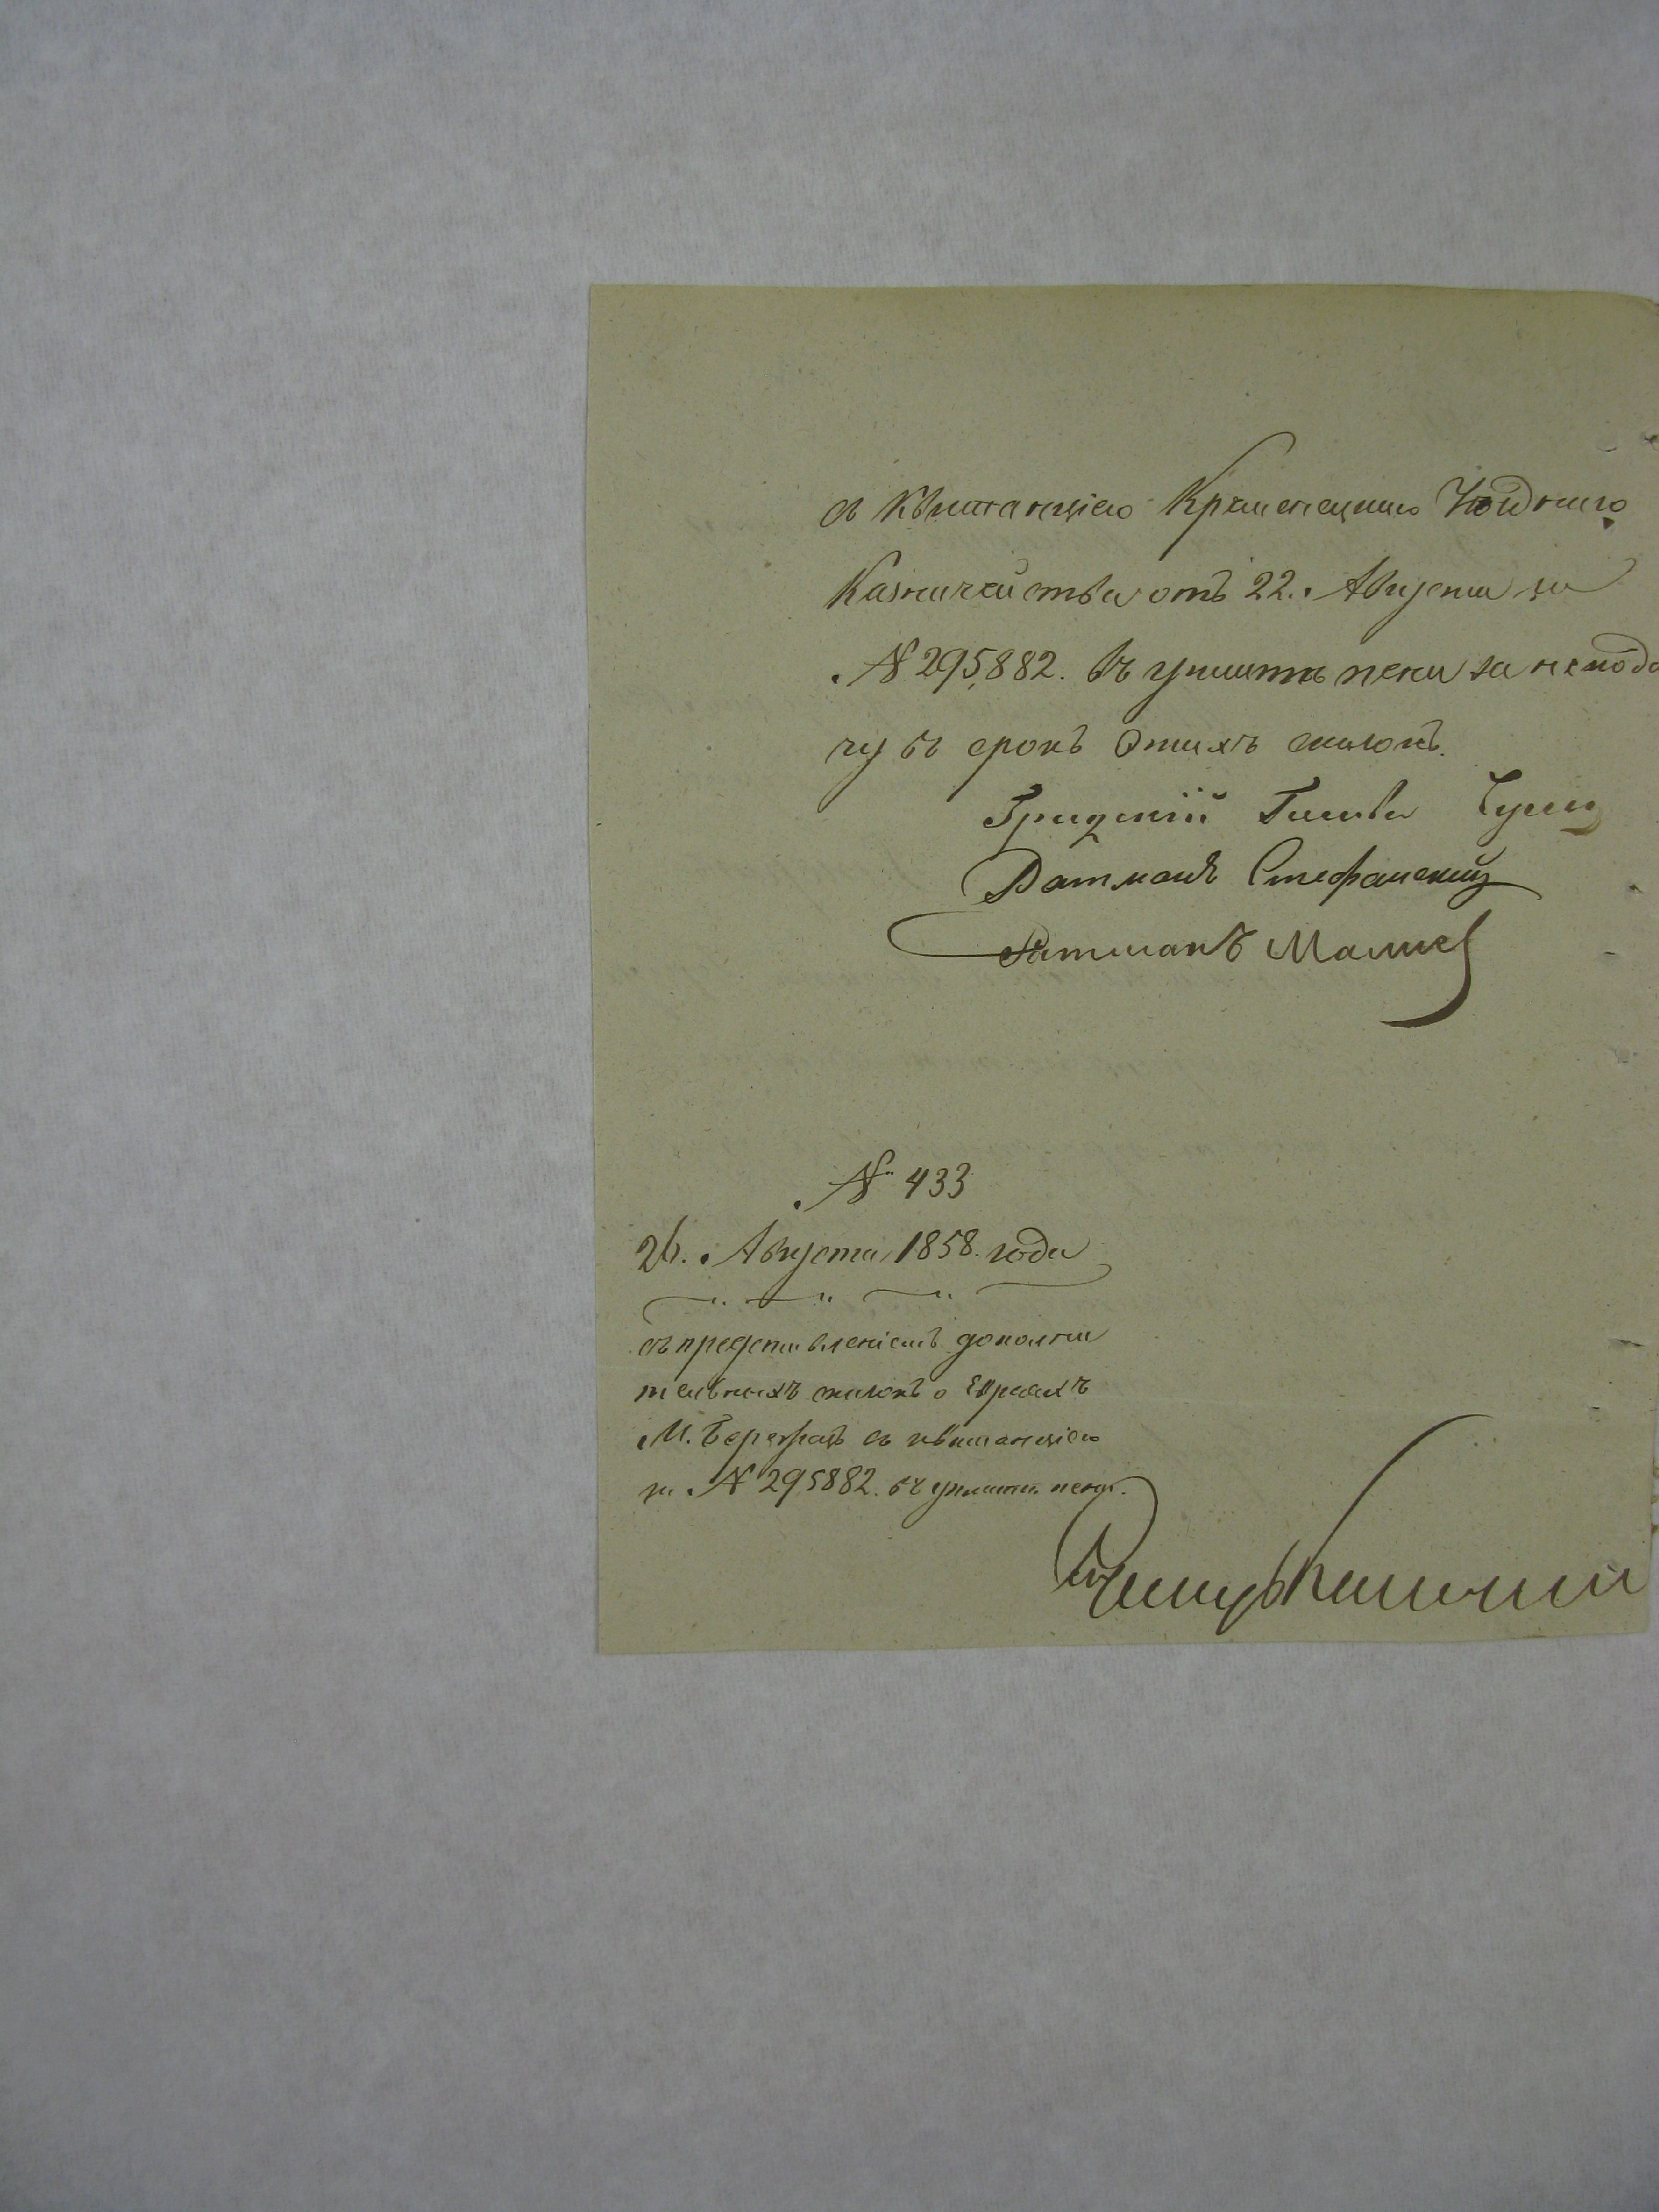 съ квитанціею Кременецкаго Уѣзднаго
Казначейства отъ 22. Августа за
№ 295,882. въ уплатѣ пени за непода
чу въ срокъ этихъ сказокъ.
Градскій Глава
Ратманъ Стефанскій
Ратманъ
№ 433
26. Августа 1858. года
съ представленіемъ дополни
тельныхъ сказокъ о Евреяхъ
М. Бережецъ съ квитанціею
за № 295882. въ уплатѣ пени.